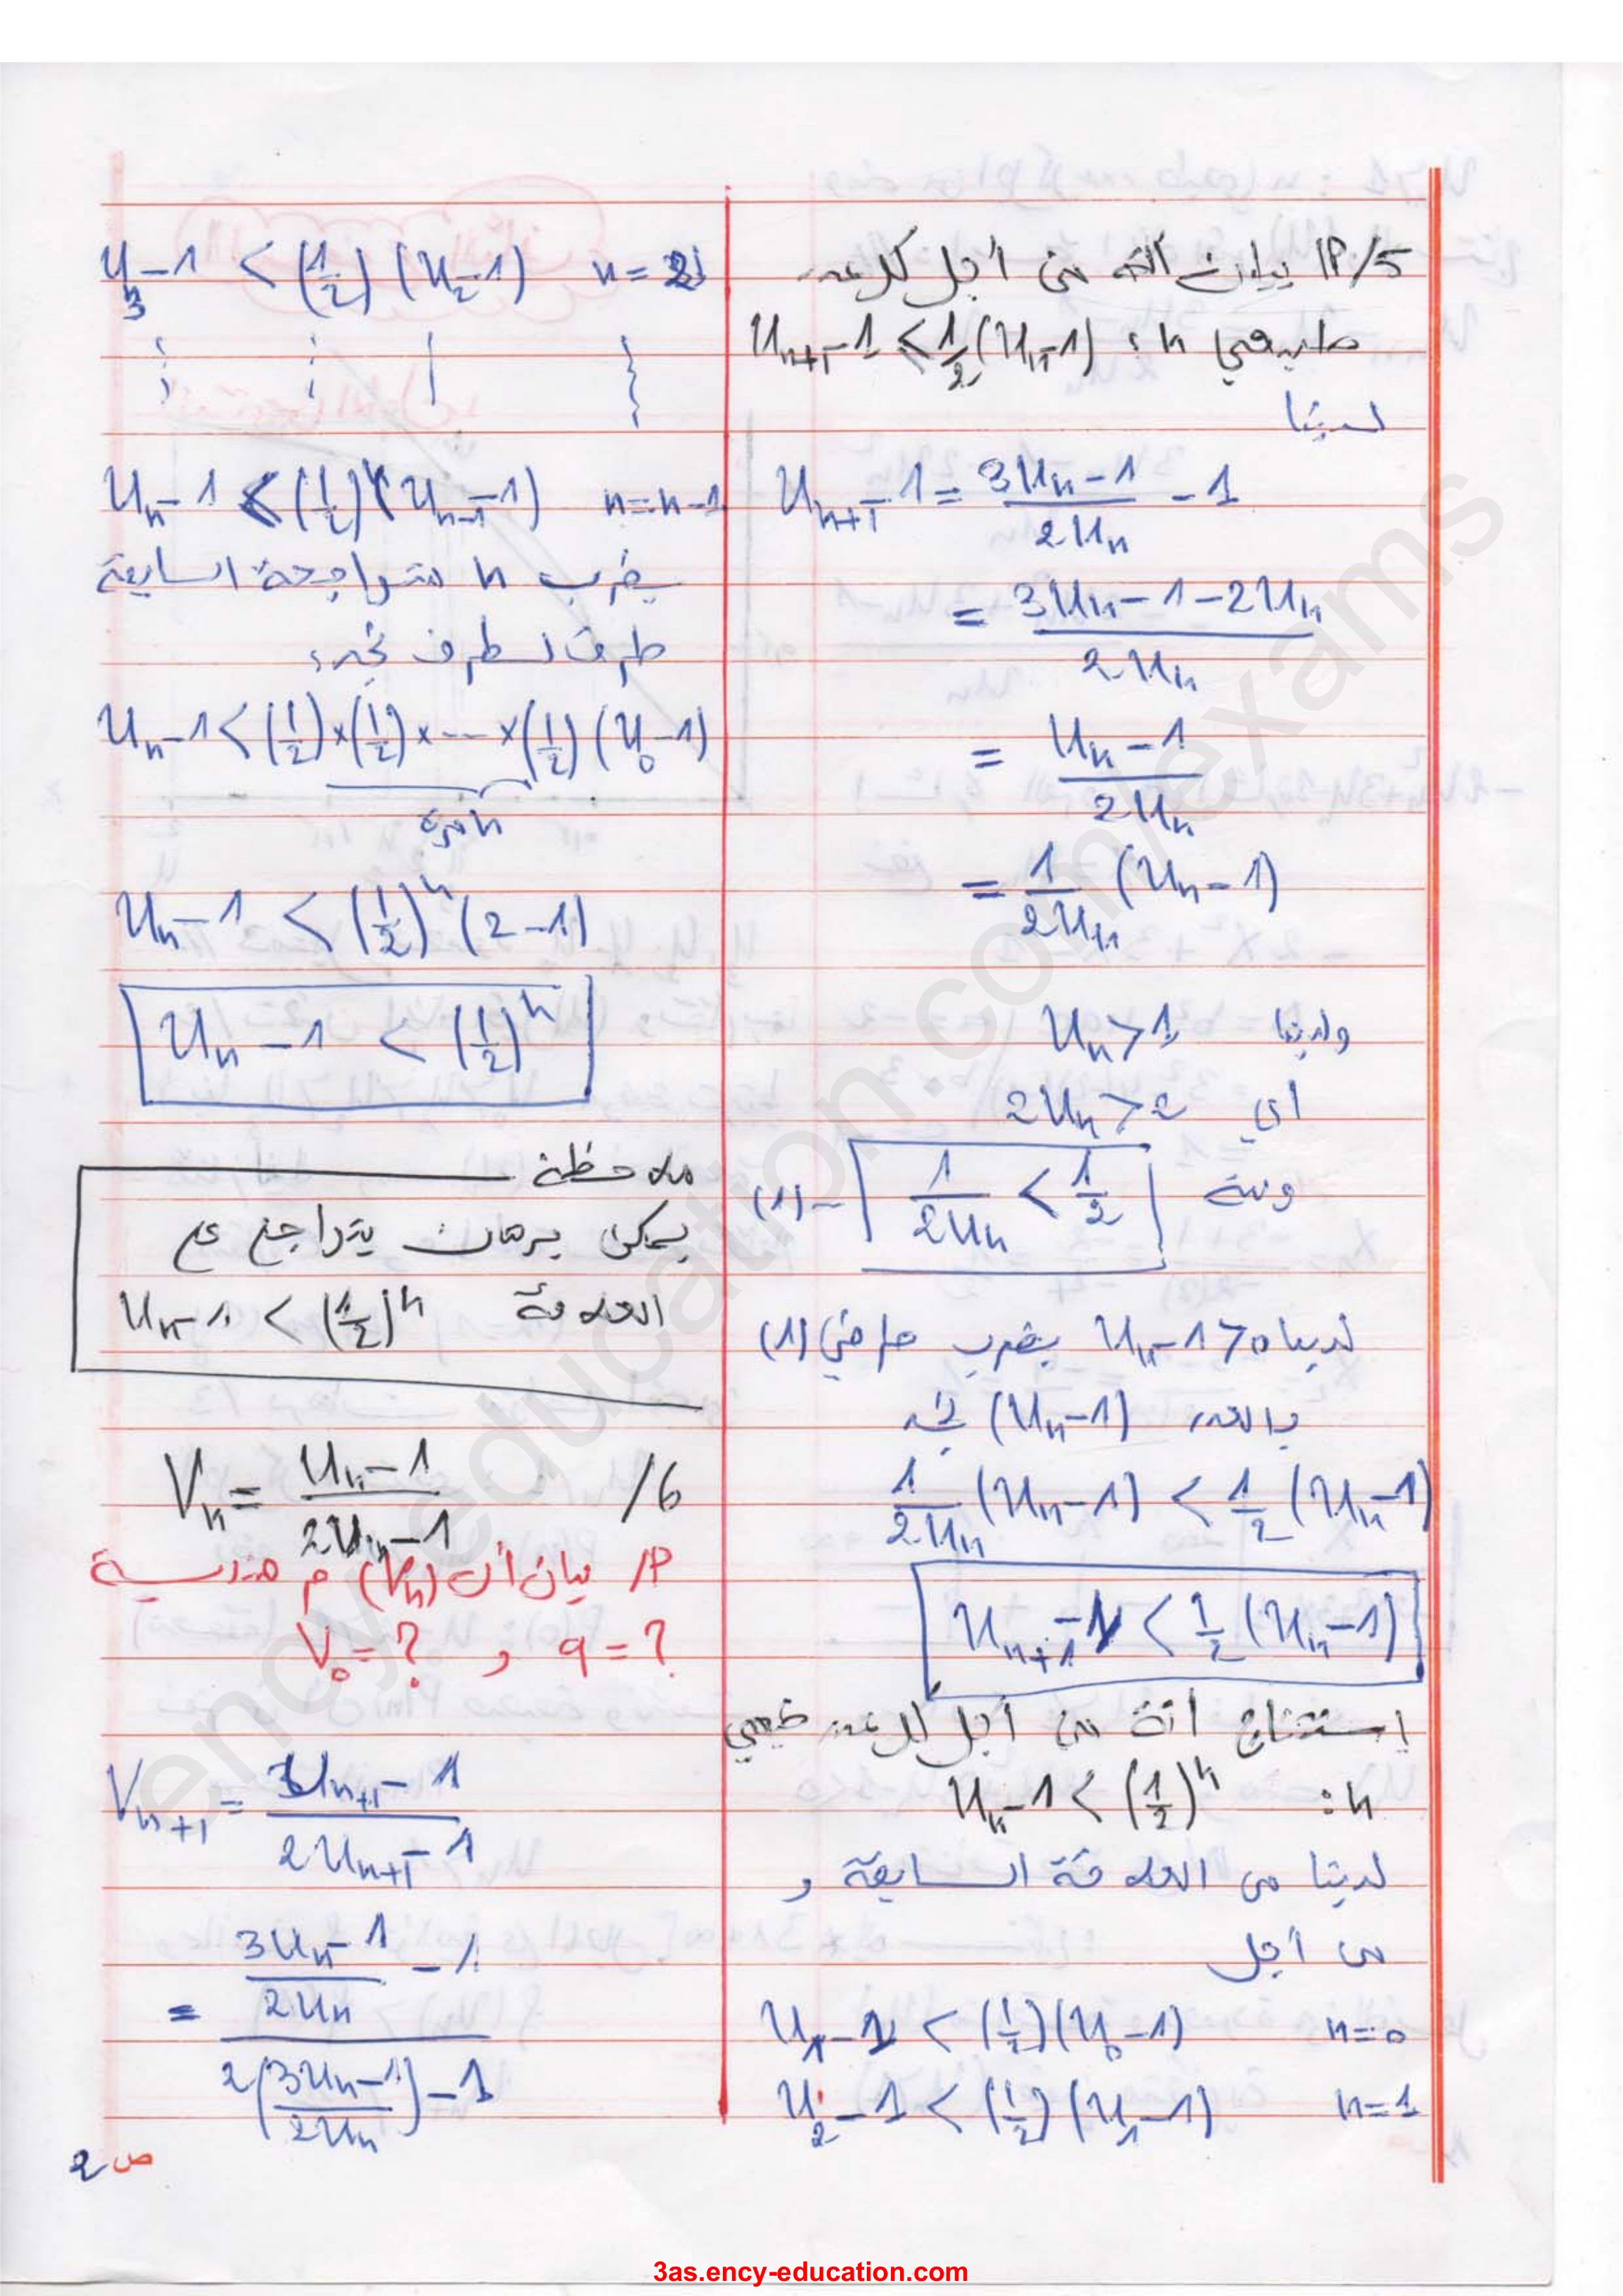 5/أ) بيان أنه من أجل كل عدد
طبيعي n : U_{n+1} - 1 < 1/2 (U_n - 1)
لدينا
U_{n+1} - 1 = (3U_n - 1)/(2U_n) - 1
= (3U_n - 1 - 2U_n)/(2U_n)
= (U_n - 1)/(2U_n)
= 1/(2U_n) (U_n - 1)
ولدينا U_n > 1
أي 2U_n > 2
ومنه 1/(2U_n) < 1/2 --(1)
لدينا U_n - 1 > 0 بضرب طرفي (1)
بالعدد (U_n - 1) نجد
1/(2U_n) (U_n - 1) < 1/2 (U_n - 1)
U_{n+1} - 1 < 1/2 (U_n - 1)
إستنتاج أنه من أجل كل عدد طبيعي
n : U_n - 1 < (1/2)^n
لدينا من العلاقة السابقة و
من أجل
n = 0 U_1 - 1 < (1/2)(U_0 - 1)
n = 1 U_2 - 1 < (1/2)(U_1 - 1)
n = 2 U_3 - 1 < (1/2)(U_2 - 1)
n = n-1 U_n - 1 < (1/2)(U_{n-1} - 1)
بضرب n متراجحة السابقة
طرف لطرف نجد:
U_n - 1 < (1/2) × (1/2) × --- × (1/2) (U_0 - 1)
n مرة
U_n - 1 < (1/2)^n (2 - 1)
U_n - 1 < (1/2)^n
ملاحظة
يمكن برهان بتراجع على
العلاقة U_n - 1 < (1/2)^n
6/ V_n = (U_n - 1)/(2U_n - 1)
أ/ بيان أن (V_n) م هندسية
q = ? و V_0 = ?
V_{n+1} = (U_{n+1} - 1)/(2U_{n+1} - 1)
= ((3U_n - 1)/(2U_n) - 1)/(2((3U_n - 1)/(2U_n)) - 1)
ص 2
ency-education.com/exams
3as.ency-education.com